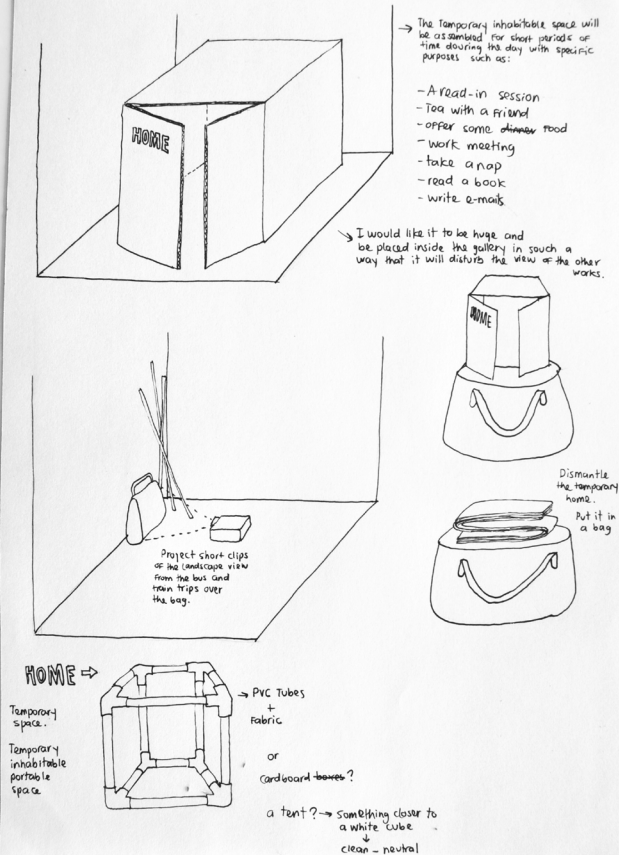 The Temporary inhabitable space will
be assembled for short periods of
time douring the day with specific
purposes such as:
- A read-in session
- Tea with a friend
- offer some dinner food
- work meeting
- take a nap
- read a book
- write e-mails
HOME
I would like it to be huge and
be placed inside the gallery in souch a
way that it will disturb the view of the other
works.
HOME
Dismantle
the temporary
home.
Put it in
a bag
Project short clips
of the landscape view
from the bus and
train trips over
the bag.
HOME
Temporary
space.
Temporary
inhabitable
portable
space
PVC Tubes
+
Fabric
or
cardboard boxes?
a tent? → something closer to
a white cube
↓
clean - neutral